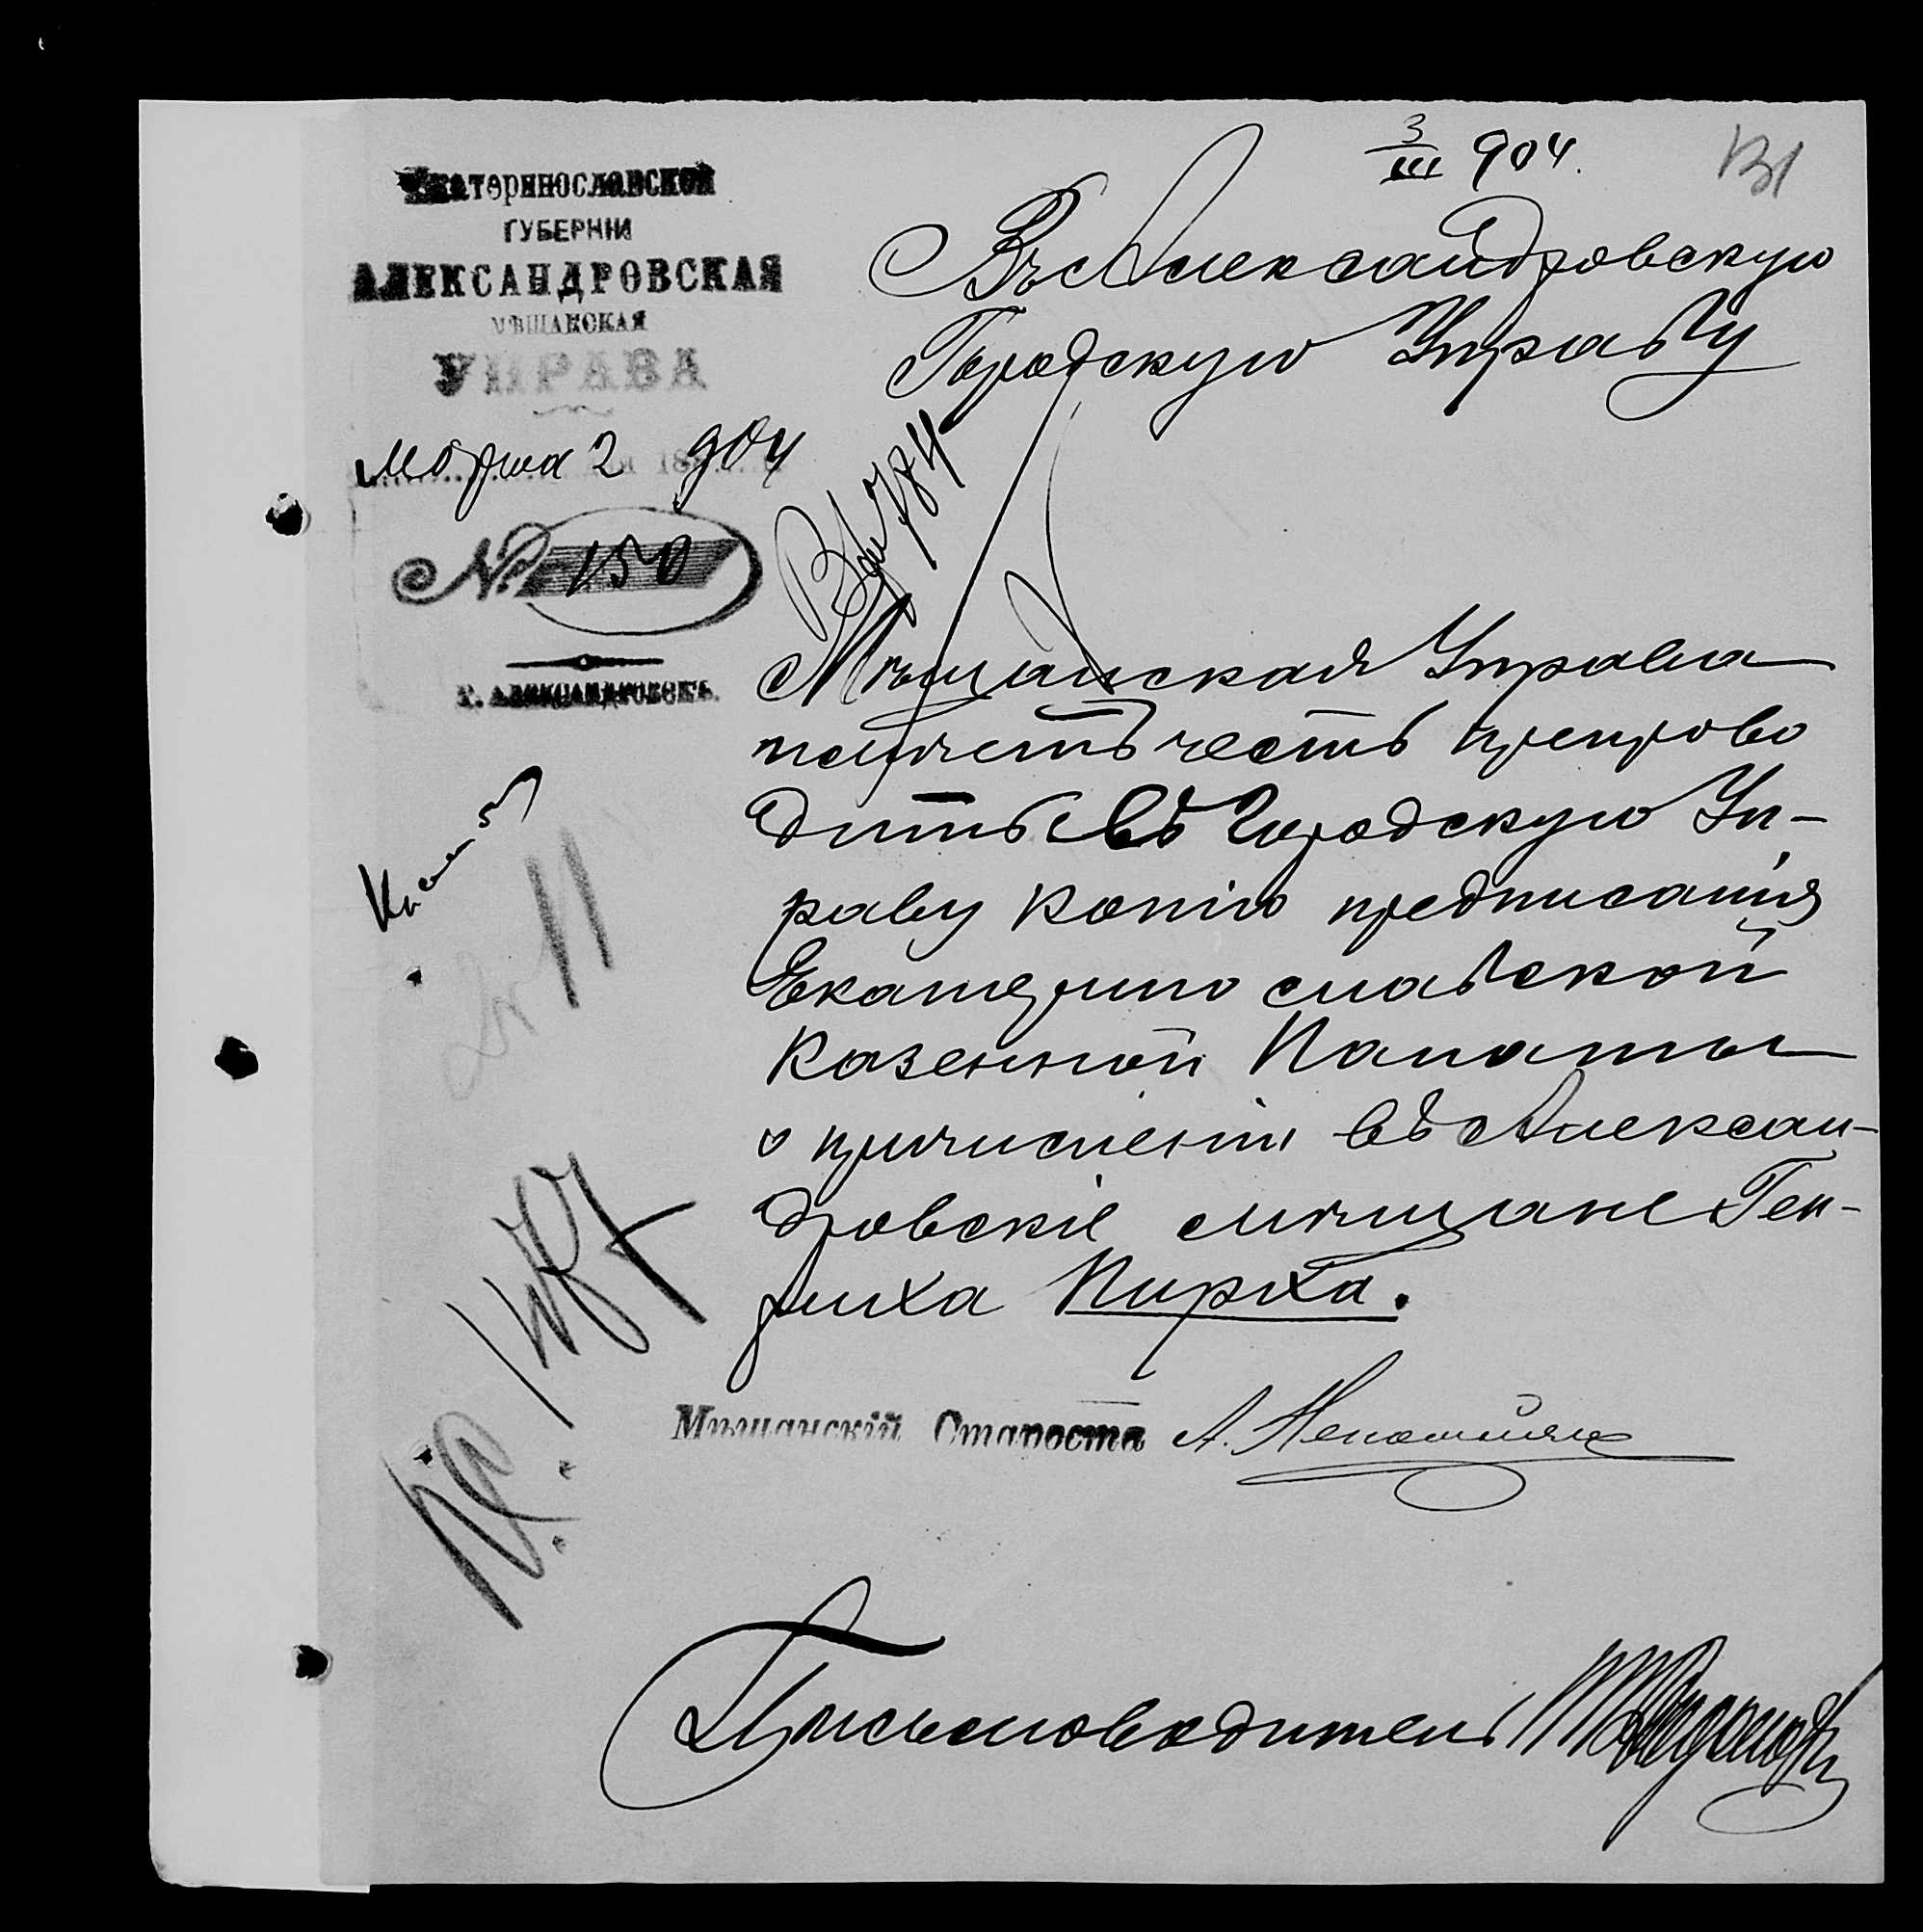 3/III 904.
131
Екатеринославской
ГУБЕРНІИ
АЛЕКСАНДРОВСКАЯ
МѢЩАНСКАЯ
УПРАВА
Марта 2 904
№ 150
Г. АЛЕКСАНДРОВСКЪ.
Въ Александровскую
Городскую Управу
784
Мѣщанская Управа
имѣетъ честь препрово
дить въ Городскую Уп-
раву копію предписанія
Екатеринославской
Казенной Палаты
о причисленіи въ Алексан-
дровскіе мѣщане Ген-
риха Пирха.
Мѣщанскій Староста А.
Письмоводитель